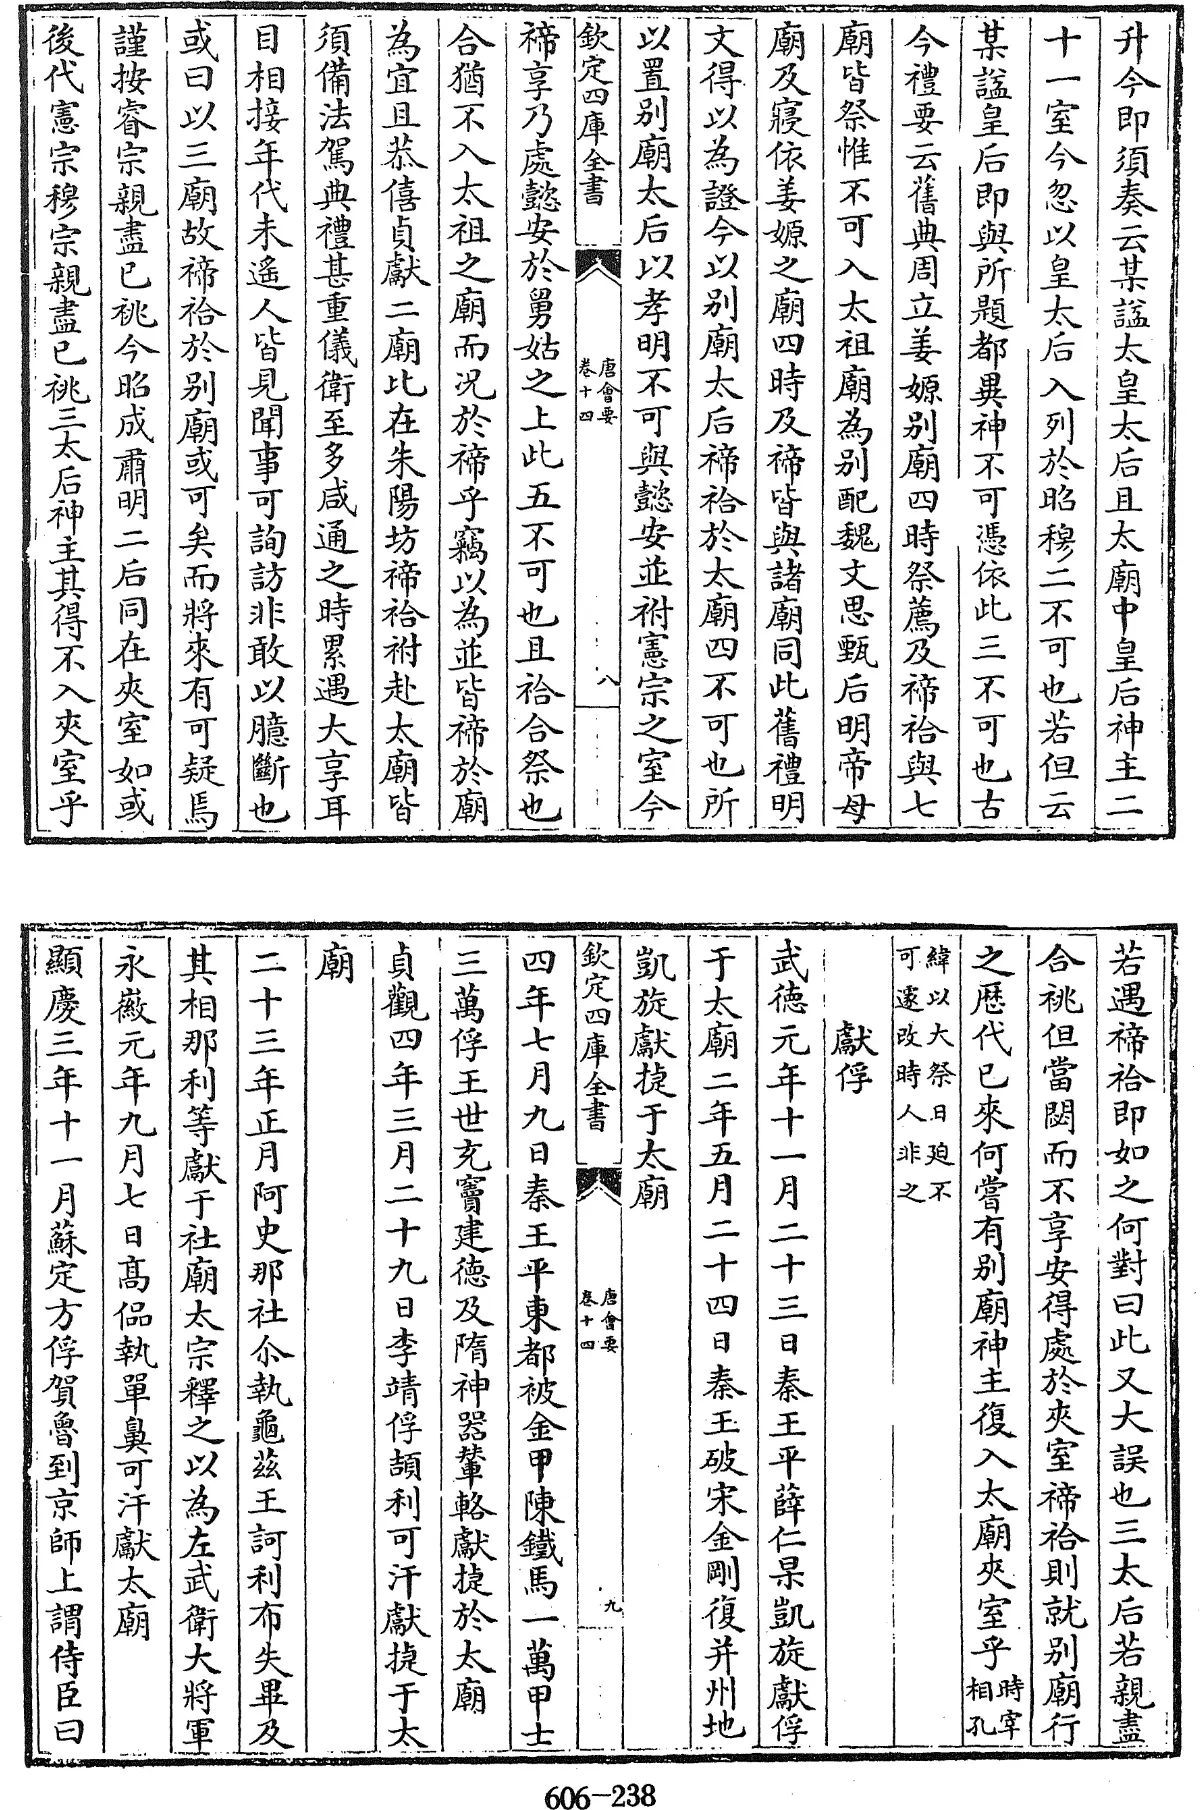 升今即須奏云某諡太皇太后且太廟中皇后神主二
十一室今忽以皇太后入列於昭穆二不可也若但云
某諡皇后即與所題都異神不可憑依此三不可也古
今禮要云舊典周立姜嫄别廟四時祭薦及禘祫與七
廟皆祭惟不可入太祖廟為别配魏文思甄后明帝母
廟及寢依姜嫄之廟四時及禘皆與諸廟同此舊禮明
文得以為證今以别廟太后禘祫於太廟四不可也所
以置别廟太后以孝明不可與懿安並祔憲宗之室今
欽定四庫全書
唐會要
卷十四
八
禘享乃處懿安於舅姑之上此五不可也且祫合祭也
合猶不入太祖之廟而況於禘乎竊以為並皆禘於廟
為宜且恭僖貞獻二廟比在朱陽坊禘祫祔赴太廟皆
須備法駕典禮甚重儀衛至多咸通之時累遇大享耳
目相接年代未遙人皆見聞事可詢訪非敢以臆斷也
或曰以三廟故禘祫於别廟或可矣而將來有可疑焉
謹按睿宗親盡已祧今昭成肅明二后同在夾室如或
後代憲宗穆宗親盡已祧三太后神主其得不入夾室乎
若遇禘祫即如之何對曰此又大誤也三太后若親盡
合祧但當閟而不享安得處於夾室禘祫則就别廟行
之歷代已來何嘗有别廟神主復入太廟夾室乎時宰
相孔
緯以大祭日廹不
可遽改時人非之
獻俘
武德元年十一月二十三日秦王平薛仁杲凱旋獻俘
于太廟二年五月二十四日秦王破宋金剛復并州地
凱旋獻捷于太廟
欽定四庫全書
唐會要
卷十四
九
四年七月九日秦王平東都被金甲陳鐵馬一萬甲士
三萬俘王世充竇建德及隋神器輦輅獻捷於太廟
貞觀四年三月二十九日李靖俘頡利可汗獻捷于太
廟
二十三年正月阿史那社尒執龜茲王訶利布失畢及
其相那利等獻于社廟太宗釋之以為左武衛大將軍
永徽元年九月七日高偘執單鼻可汗獻太廟
顯慶三年十一月蘇定方俘賀魯到京師上謂侍臣曰
606-238